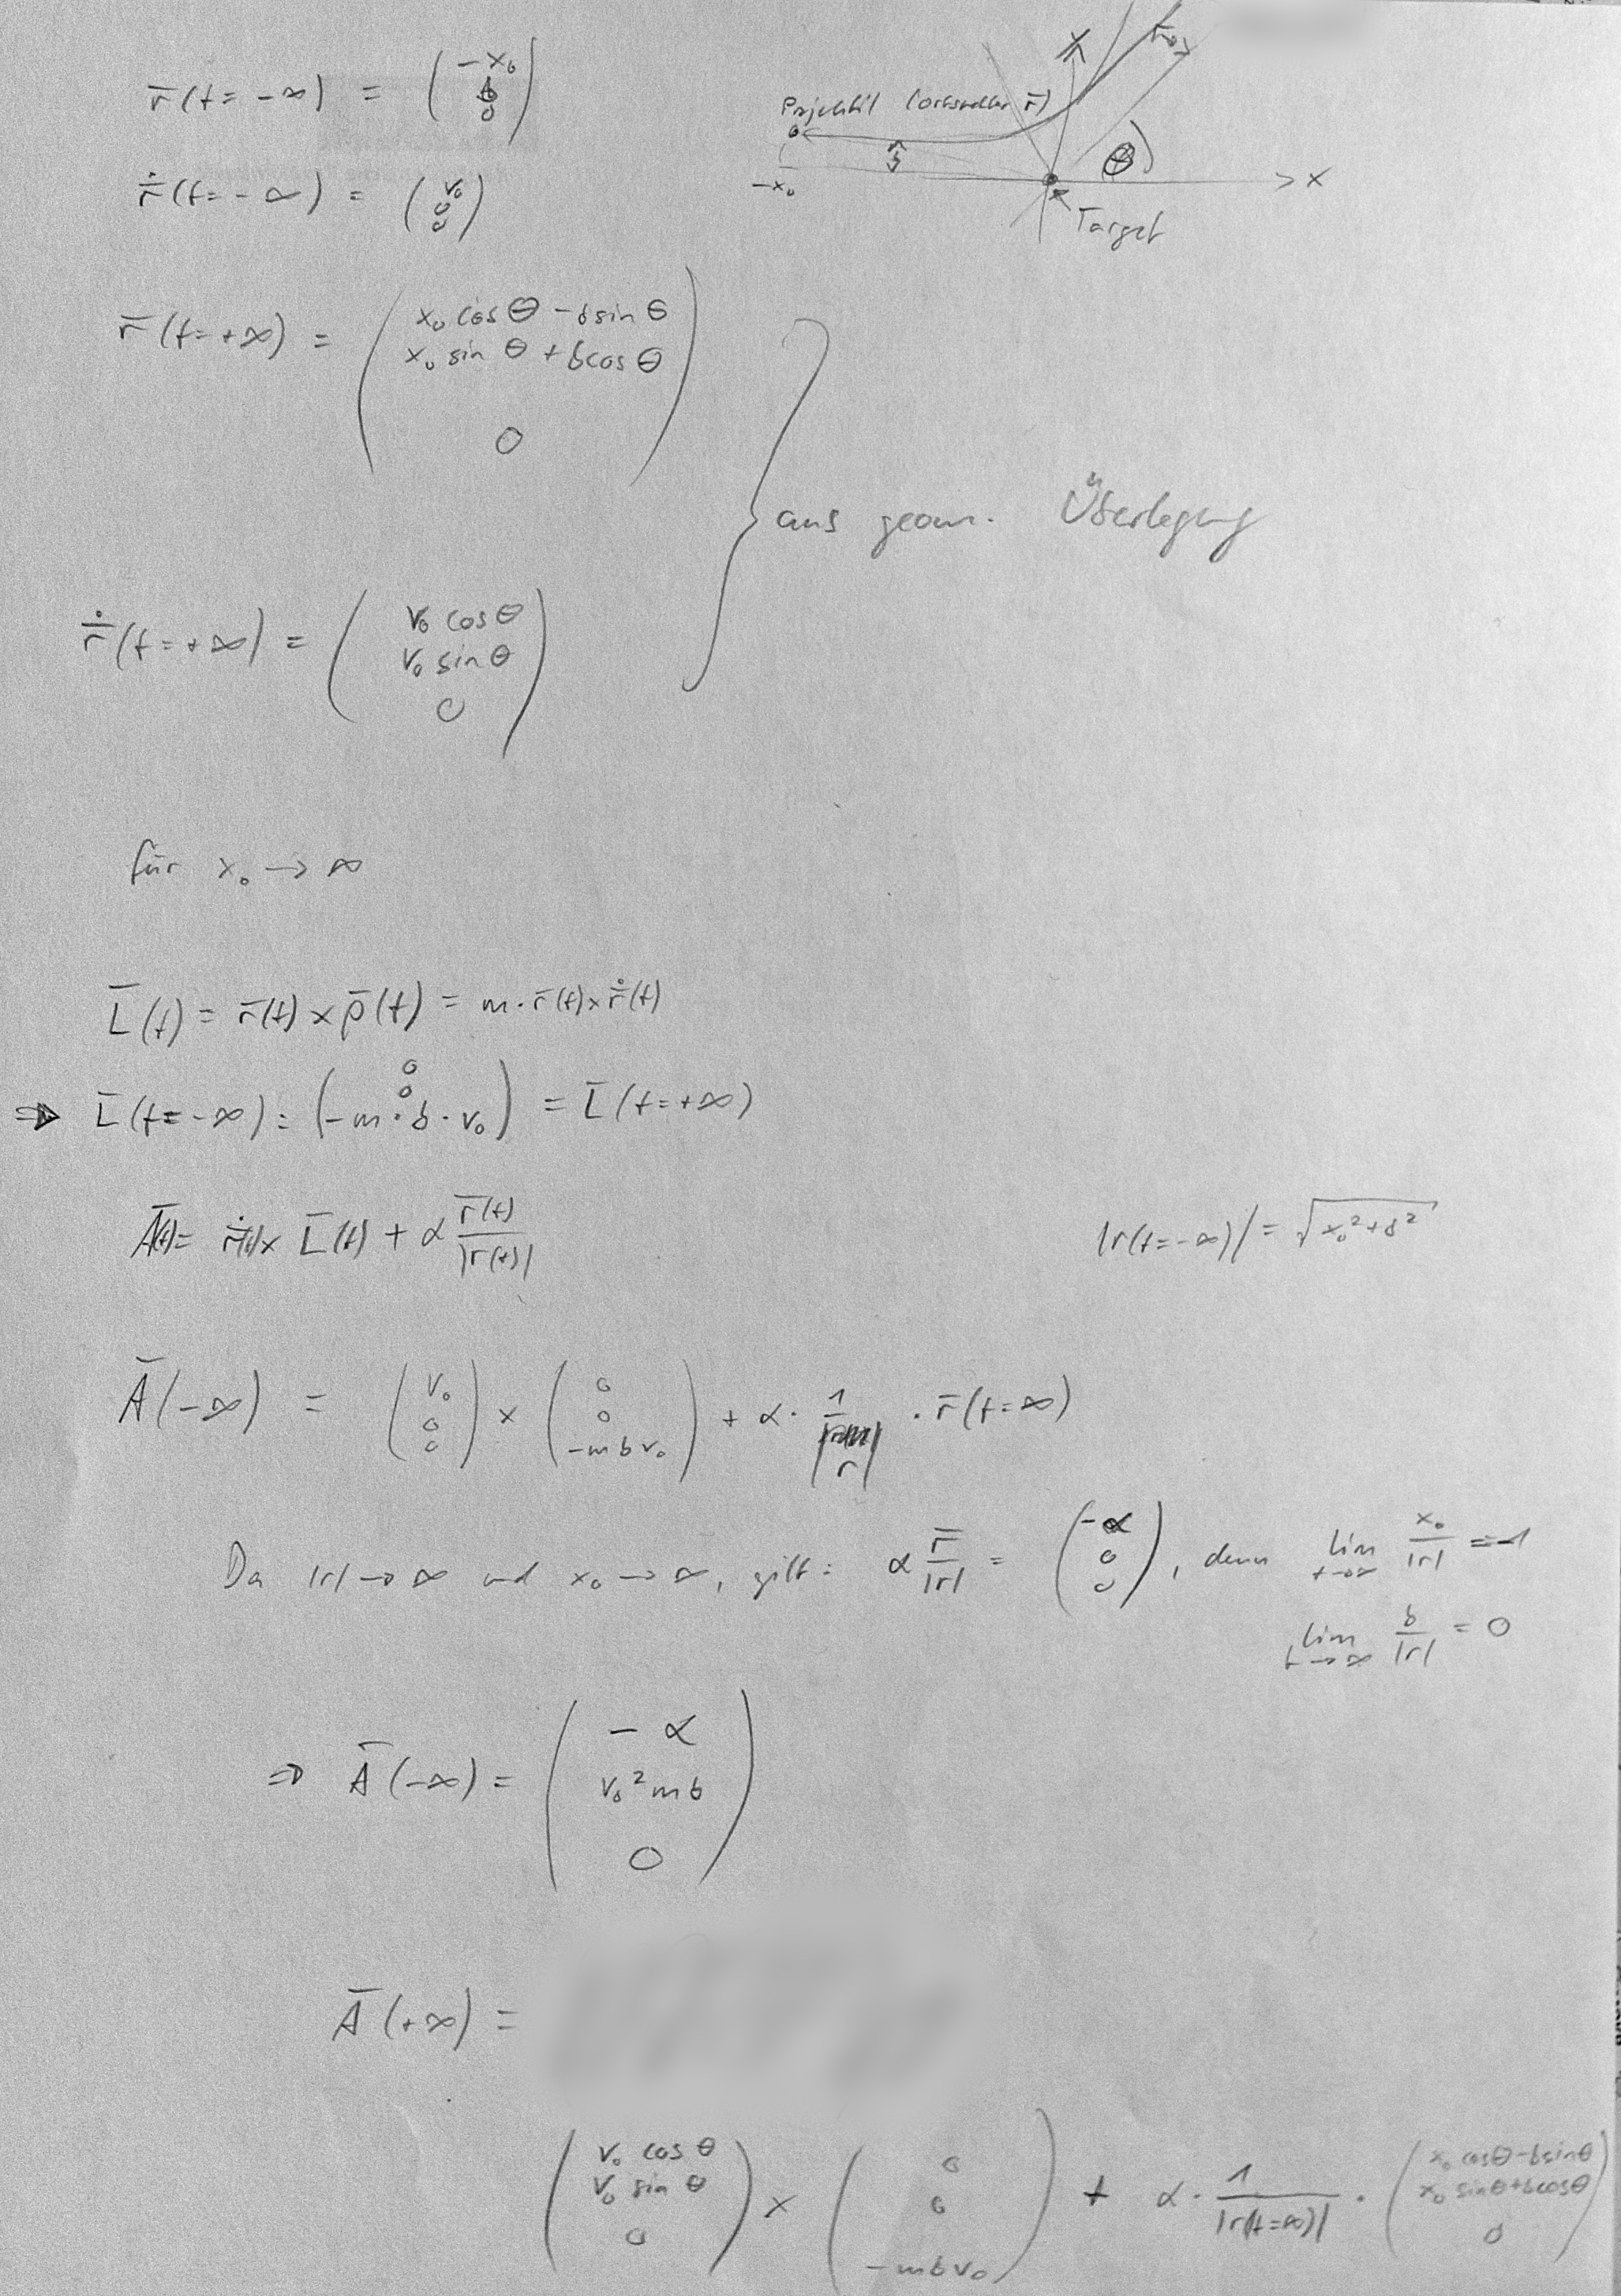 r̄(t=-∞) = (-x₀ b 0)
Projektil (Ortsvektor r̄)
b
-x₀
Θ
> x
Target
ṙ̄(t=-∞) = (v₀ 0 0)
r̄(t=+∞) = (x₀ cos Θ - b sin Θ
x₀ sin Θ + b cos Θ
0)
aus geom. Überlegung
ṙ̄(t=+∞) = (v₀ cos Θ
v₀ sin Θ
0)
für x₀ → ∞
L̄(t) = r̄(t) × p̄(t) = m · r̄(t) × ṙ̄(t)
⇒ L̄(t=-∞) = (0 0 -m·b·v₀) = L̄(t=+∞)
Ā(t) = ṙ̄(t) × L̄(t) + α r̄(t)/|r(t)|
|r(t=-∞)| = √(x₀² + b²)
Ā(-∞) = (v₀ 0 0) × (0 0 -mbv₀) + α · 1/|r| · r̄(t=∞)
Da |r| → ∞ und x₀ → ∞, gilt: α r̄/|r| = (-α 0 0), denn lim t→∞ x₀/|r| = 1
lim t→∞ b/|r| = 0
⇒ Ā(-∞) = (-α
v₀²mb
0)
Ā(+∞) =
(v₀ cos Θ v₀ sin Θ 0) × (0 0 -mbv₀) + α · 1/|r(t=∞)| · (x₀ cosΘ - b sinΘ x₀ sinΘ + b cosΘ 0)